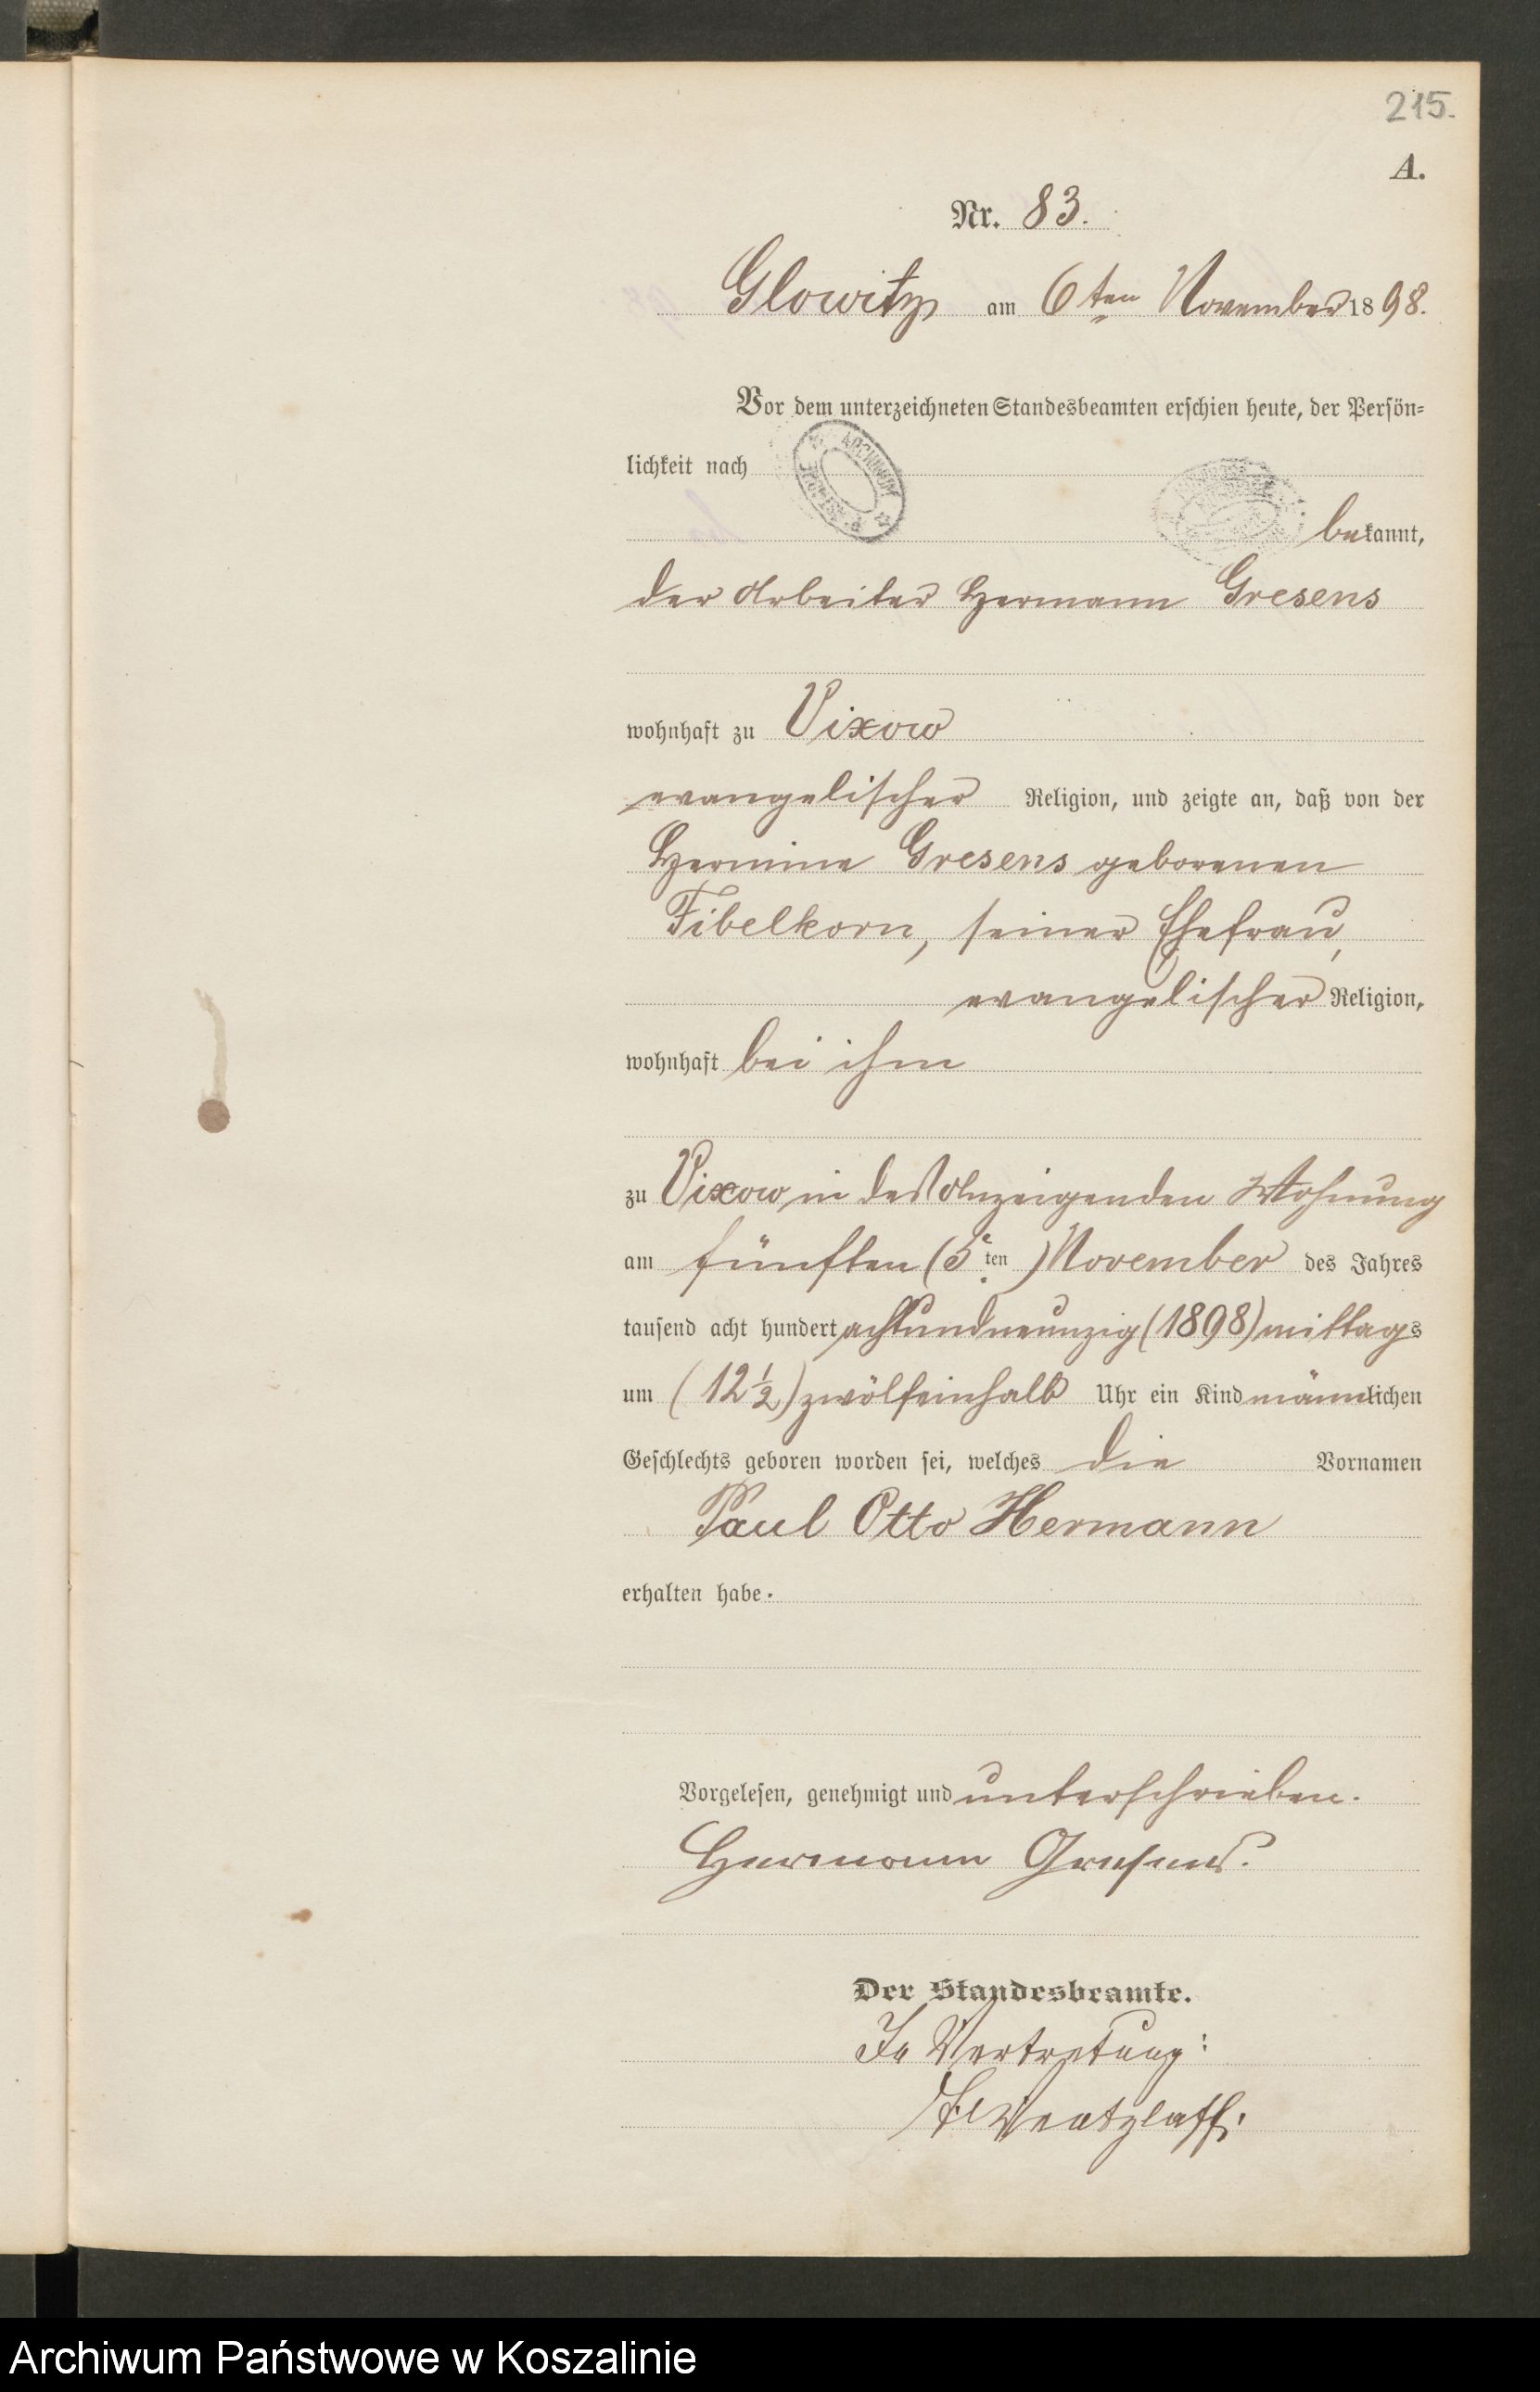 215.
A.
Nr. 83.
Glowitz am 6ten November 1898.
Vor dem unterzeichneten Standesbeamten erschien heute, der Persön-
lichkeit nach
ARCHIWUM
bekannt,
der Arbeiter Hermann Gresens
wohnhaft zu Vixow
evangelischer Religion, und zeigte an, daß von der
Hermine Gresens geborenen
Fibelkorn, seiner Ehefrau,
evangelischer Religion,
wohnhaft bei ihm
zu Vixow in des Anzeigenden Wohnung
am fünften (5ten) November des Jahres
tausend acht hundert achtundneunzig (1898) mittags
um (12½) zwölfeinhalb Uhr ein Kind männlichen
Geschlechts geboren worden sei, welches die Vornamen
Paul Otto Hermann
erhalten habe.
Vorgelesen, genehmigt und unterschrieben.
Hermann Gresens.
Der Standesbeamte.
In Vertretung:
Wentzlaff.
Archiwum Państwowe w Koszalinie